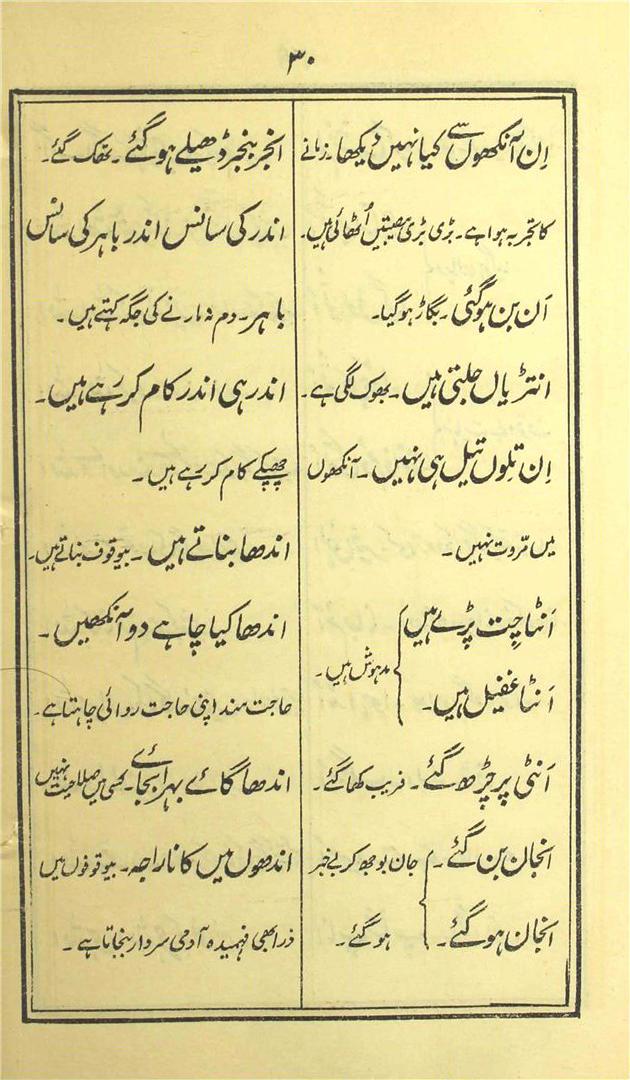 ۳۰
اِن آنکھوں سے کیا نہیں دیکھا۔ زمانے
کا تجربہ ہوا ہے۔ بڑی بڑی مصیبتیں اُٹھائی ہیں۔
اَن بن ہوگئی۔ بگاڑ ہوگیا۔
انتڑیاں جلتی ہیں۔ بھوک لگی ہے۔
اِن تِلوں تیل ہی نہیں۔ آنکھوں
میں مروّت نہیں۔
اَنٹا چِت پڑے ہیں
اَنٹا غفیل ہیں۔
مدہوش ہیں۔
اَنٹی پر چڑھ گئے۔ فریب کھا گئے۔
انجان بن گئے۔
انجان ہو گئے۔
جان بوجھ کر بے خبر
ہو گئے۔
انجر پنجر ڈھیلے ہو گئے۔ تھک گئے۔
اندر کی سانس اندر باہر کی سانس
باہر۔ دم نہ مارنے کی جگہ کہتے ہیں۔
اندر ہی اندر کام کر رہے ہیں۔
چپکے کام کر رہے ہیں۔
اندھا بناتے ہیں۔ بیوقوف بناتے ہیں۔
اندھا کیا چاہے دو آنکھیں۔
حاجت مند اپنی حاجت روائی چاہتا ہے۔
اندھا گائے بہرا بجائے۔ کسی میں صلاحیت نہیں
اندھوں میں کانا راجہ۔ بیوقوفوں میں
ذرا بھی فہمیدہ آدمی سردار بنجاتا ہے۔